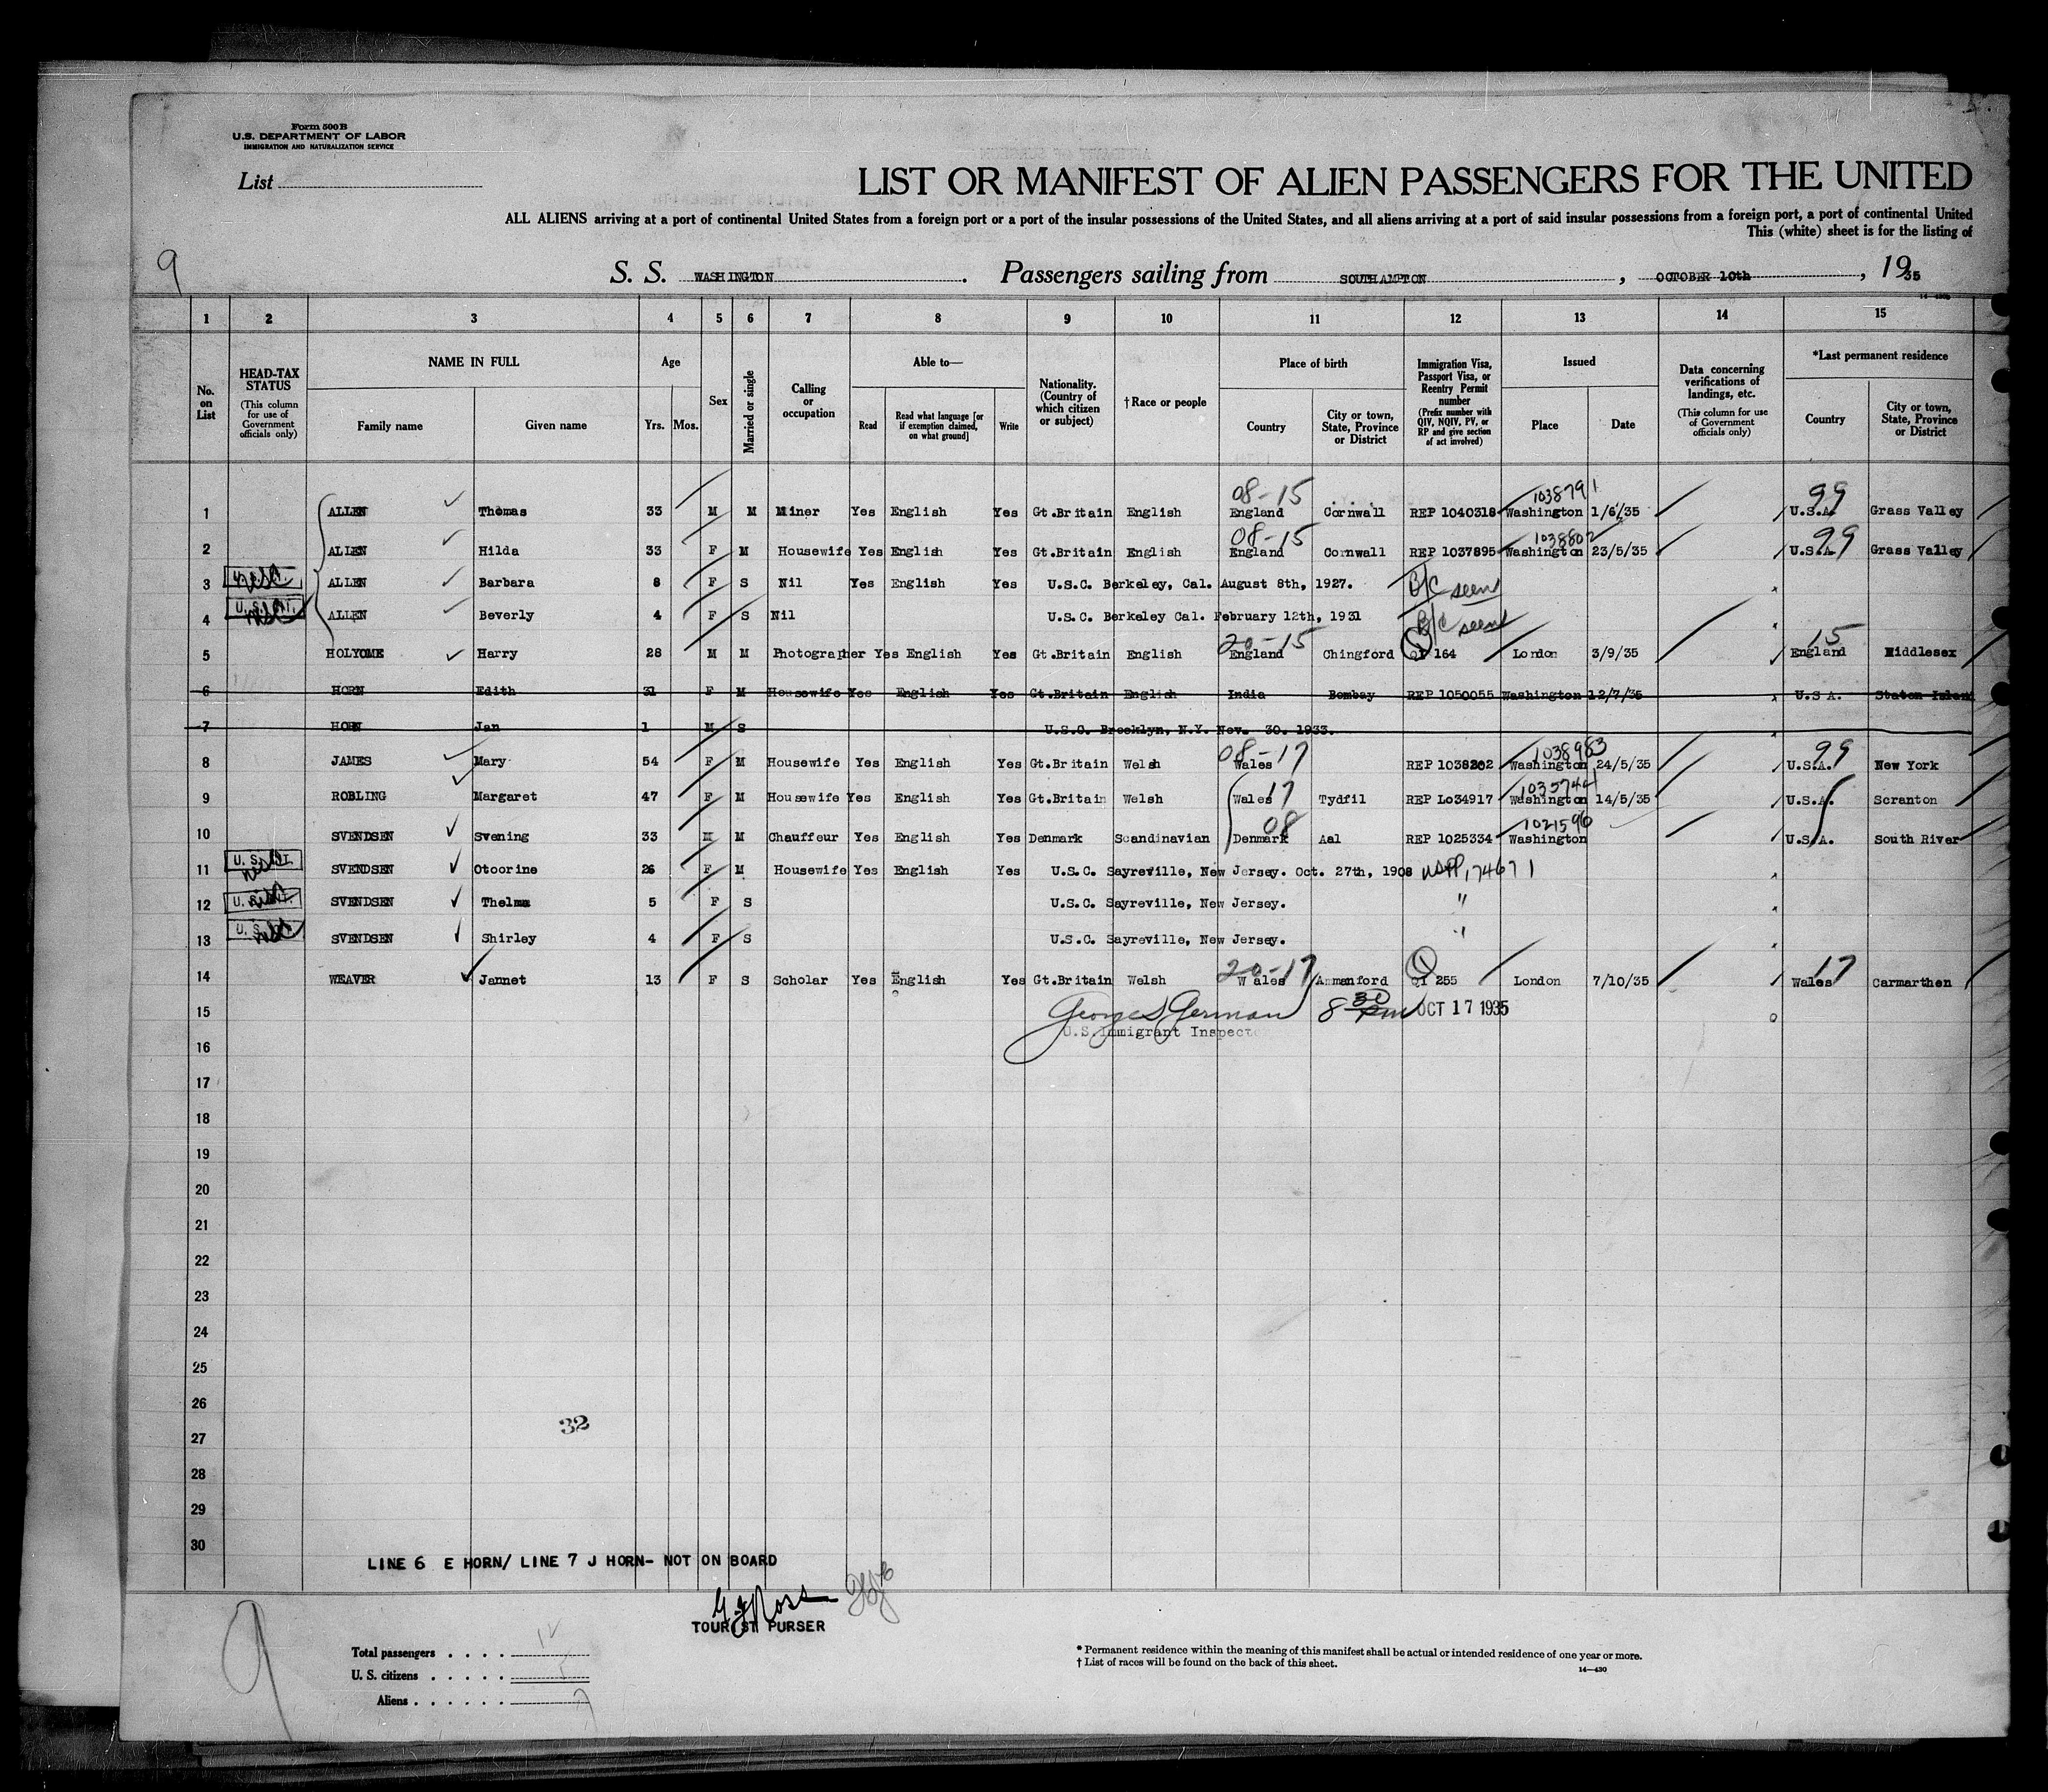 Form 500 B
U.S. DEPARTMENT OF LABOR
IMMIGRATION AND NATURALIZATION SERVICE
List
LIST OR MANIFEST OF ALIEN PASSENGERS FOR THE UNITED
ALL ALIENS arriving at a port of continental United States from a foreign port or a port of the insular possessions of the United States, and all aliens arriving at a port of said insular possessions from a foreign port, a port of continental United
This (white) sheet is for the listing of
9
S. S. WASHINGTON. Passengers sailing from SOUTHAMPTON, OCTOBER 10th, 1935
1 2 3 4 5 6 7 8 9 10 11 12 13 14 15
No. on List
HEAD-TAX STATUS (This column for use of Government officials only)
NAME IN FULL
Family name Given name
Age
Yrs. Mos.
Sex
Married or single
Calling or occupation
Able to—
Read Read what language [or if exemption claimed, on what ground] Write
Nationality. (Country of which citizen or subject)
†Race or people
Place of birth
Country City or town, State, Province or District
Immigration Visa, Passport Visa, or Reentry Permit number (Prefix number with QIV, NQIV, PV, or RP and give section of act involved)
Issued
Place Date
Data concerning verifications of landings, etc. (This column for use of Government officials only)
*Last permanent residence
Country City or town, State, Province or District
08-15 1038791 99
1 ALLEN Thomas 33 M M Miner Yes English Yes Gt.Britain English England Cornwall REP 1040318 Washington 1/6/35 U.S.A. Grass Valley
08-15 1038802 99
2 ALLEN Hilda 33 F M Housewife Yes English Yes Gt.Britain English England Cornwall REP 1037895 Washington 23/5/35 U.S.A. Grass Valley
3 ALLEN Barbara 8 F S Nil Yes English Yes U.S.C. Berkeley, Cal. August 8th, 1927. B/C seen
4 U.S. CIT. ALLEN Beverly 4 F S Nil U.S.C. Berkeley Cal. February 12th, 1931 B/C seen
20-15 15
5 HOLYOME Harry 28 M M Photographer Yes English Yes Gt.Britain English England Chingford QI 164 London 3/9/35 England Middlesex
6 HORN Edith 31 F M Housewife Yes English Yes Gt.Britain English India Bombay REP 1050055 Washington 12/7/35 U.S.A. Staton Islan
7 HORN Jan 1 M S U.S.C. Brooklyn, N.Y. Nov. 30. 1933.
08-17 1038983 99
8 JAMES Mary 54 F M Housewife Yes English Yes Gt.Britain Welsh Wales REP 1038202 Washington 24/5/35 U.S.A. New York
17 1035744
9 ROBLING Margaret 47 F M Housewife Yes English Yes Gt.Britain Welsh Wales Tydfil REP Lo34917 Washington 14/5/35 U.S.A. Scranton
08 1021596
10 SVENDSEN Svening 33 M M Chauffeur Yes English Yes Denmark Scandinavian Denmark Aal REP 1025334 Washington U.S.A. South River
11 U.S. CIT. SVENDSEN Otoorine 26 F M Housewife Yes English Yes U.S.C. Sayreville, New Jersey. Oct. 27th, 1908 USPP, 74671
12 U.S. CIT. SVENDSEN Thelma 5 F S U.S.C. Sayreville, New Jersey. "
13 U.S. CIT. SVENDSEN Shirley 4 F S U.S.C. Sayreville, New Jersey. "
20-17 17
14 WEAVER Jannet 13 F S Scholar Yes English Yes Gt.Britain Welsh Wales Ammanford QI 255 London 7/10/35 Wales Carmarthen
15 George S German 8 30 Pm OCT 17 1935
U.S. Immigrant Inspector
16
17
18
19
20
21
22
23
24
25
26
32
27
28
29
30
LINE 6 E HORN/ LINE 7 J HORN- NOT ON BOARD
G J Ross
TOURIST PURSER
9
Total passengers . . . . 12
U. S. citizens . . . . . 5
Aliens . . . . . . 7
* Permanent residence within the meaning of this manifest shall be actual or intended residence of one year or more.
† List of races will be found on the back of this sheet.
14—430